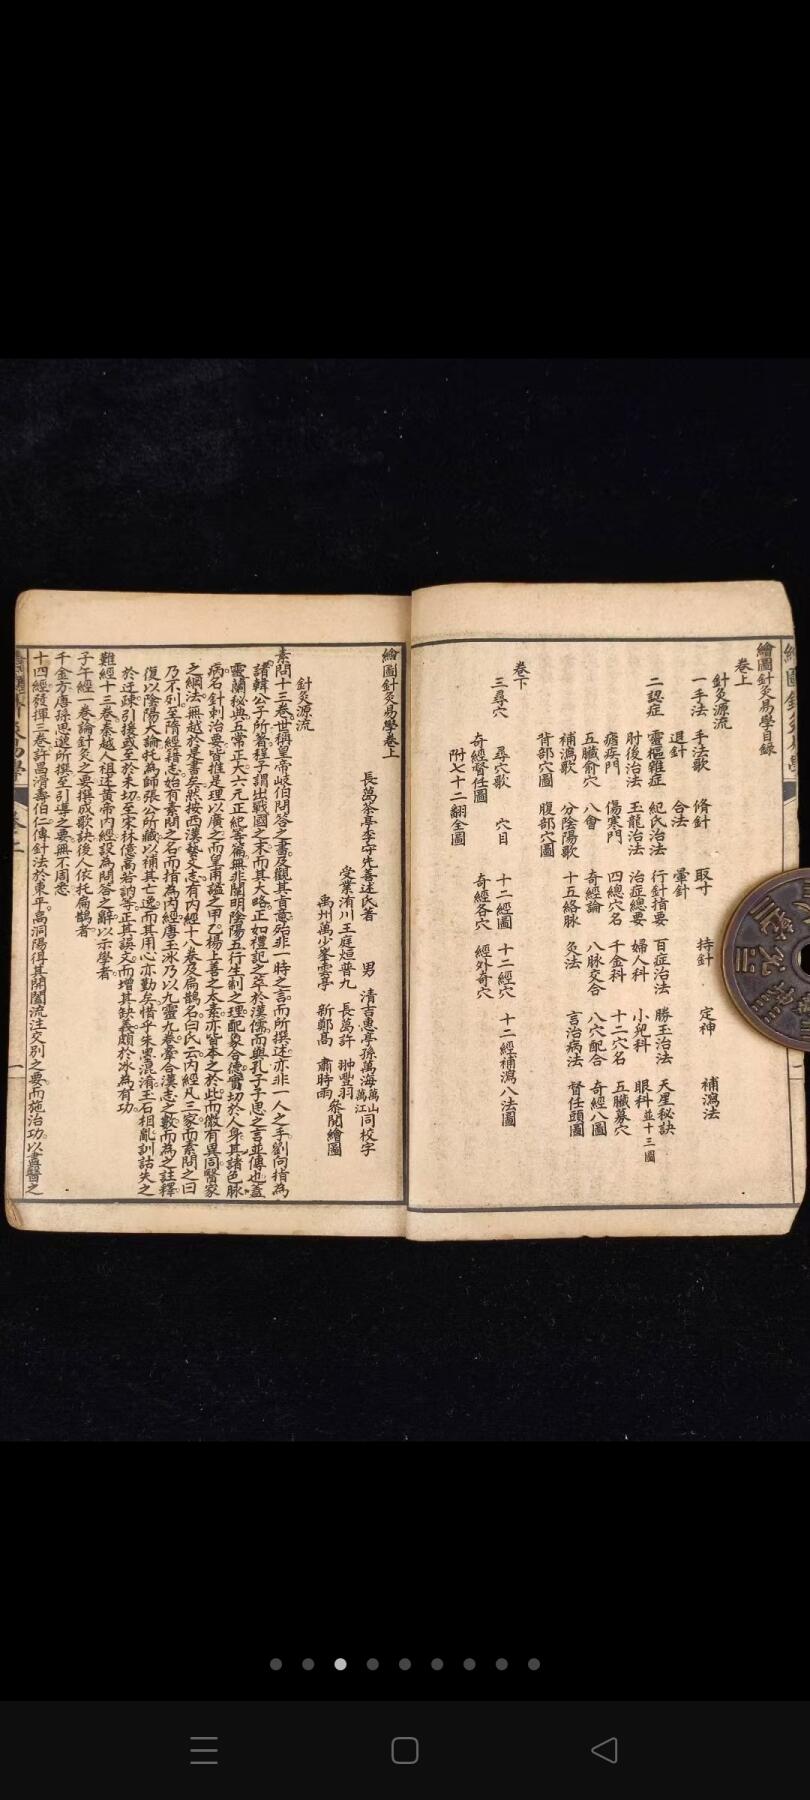 繪圖針灸易學目錄
卷上
針灸源流
一手法 手法歌 脩針 取寸 持針 定神 補瀉法
退針 合法 暈針
二認症 靈樞雜症 紀氏治法 行針指要 百症治法 勝玉治法 天星秘訣
肘後治法 玉龍治法 治症總要 婦人科 小兒科 眼科並十三圖
瘡疾門 傷寒門 四總穴名 千金科 十二穴名 五臟募穴
五臟俞穴 八會 奇經論 八脉交合 八穴配合 奇經八圖
補瀉歌 分陰陽歌 十五絡脉 灸法 言治病法 督任頭圖
背部穴圖 腹部穴圖
卷下
三尋穴 尋穴歌 穴目 十二經圖 十二經穴 十二經補瀉八法圖
奇經督任圖 奇經各穴 經外奇穴
附七十二翻全圖
繪圖針灸易學卷上
長葛茶亭李守先善述氏著 男 清吉惠亭孫萬海萬山萬江同校字
受業洧川王庭烜普九 長葛許 翀豐羽
禹州萬少峯雲亭 新鄭髙 肅時雨 叅閱繪圖
針灸源流
素問十三卷世稱皇帝岐伯問答之書及觀其旨意殆非一時之言而所撰述亦非一人之手劉向指為
諸韓公子所著程子謂出戰國之末而其大略正如禮記之萃於漢儒而與孔子子思之言並傳也蓋
靈蘭秘典五常正大六元正紀等篇無非闡明陰陽五行生制之理配象合德實切於人身其諸色脉
病名針刺治要皆推是理以廣之而皇甫謐之甲乙楊上善之太素亦皆本之於此而微有異同醫家
之綱法無越於是書矣然按西漢藝文志有内經十八卷及扁鵲名白氏云内經凡三家而素問之曰
乃不列至隋經籍志始有素問之名而指為内經唐王冰乃以九靈九卷牽合漢志之數而為之註釋
復以陰陽大論托為師張公所藏以補其亡逸而其用心亦勤矣惜乎朱墨混淆玉石相亂訓詁失之
於迂疎引援或至於未切至宋林億高若訥等正其誤文而增其缺義頗於冰為有功
難經十三卷秦越人祖述黃帝内經設為問答之辭以示學者
子午經一卷論針灸之要撰成歌訣後人依托扁鵲者
千金方唐孫思邈所撰至引導之要無不周悉
十四經發揮三卷許昌滑壽伯仁傳針法於東平高洞陽得其開闔流注交別之要而施治功以盡醫之